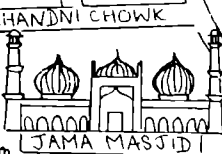 HANDNI CHOWK
JAMA MASJID